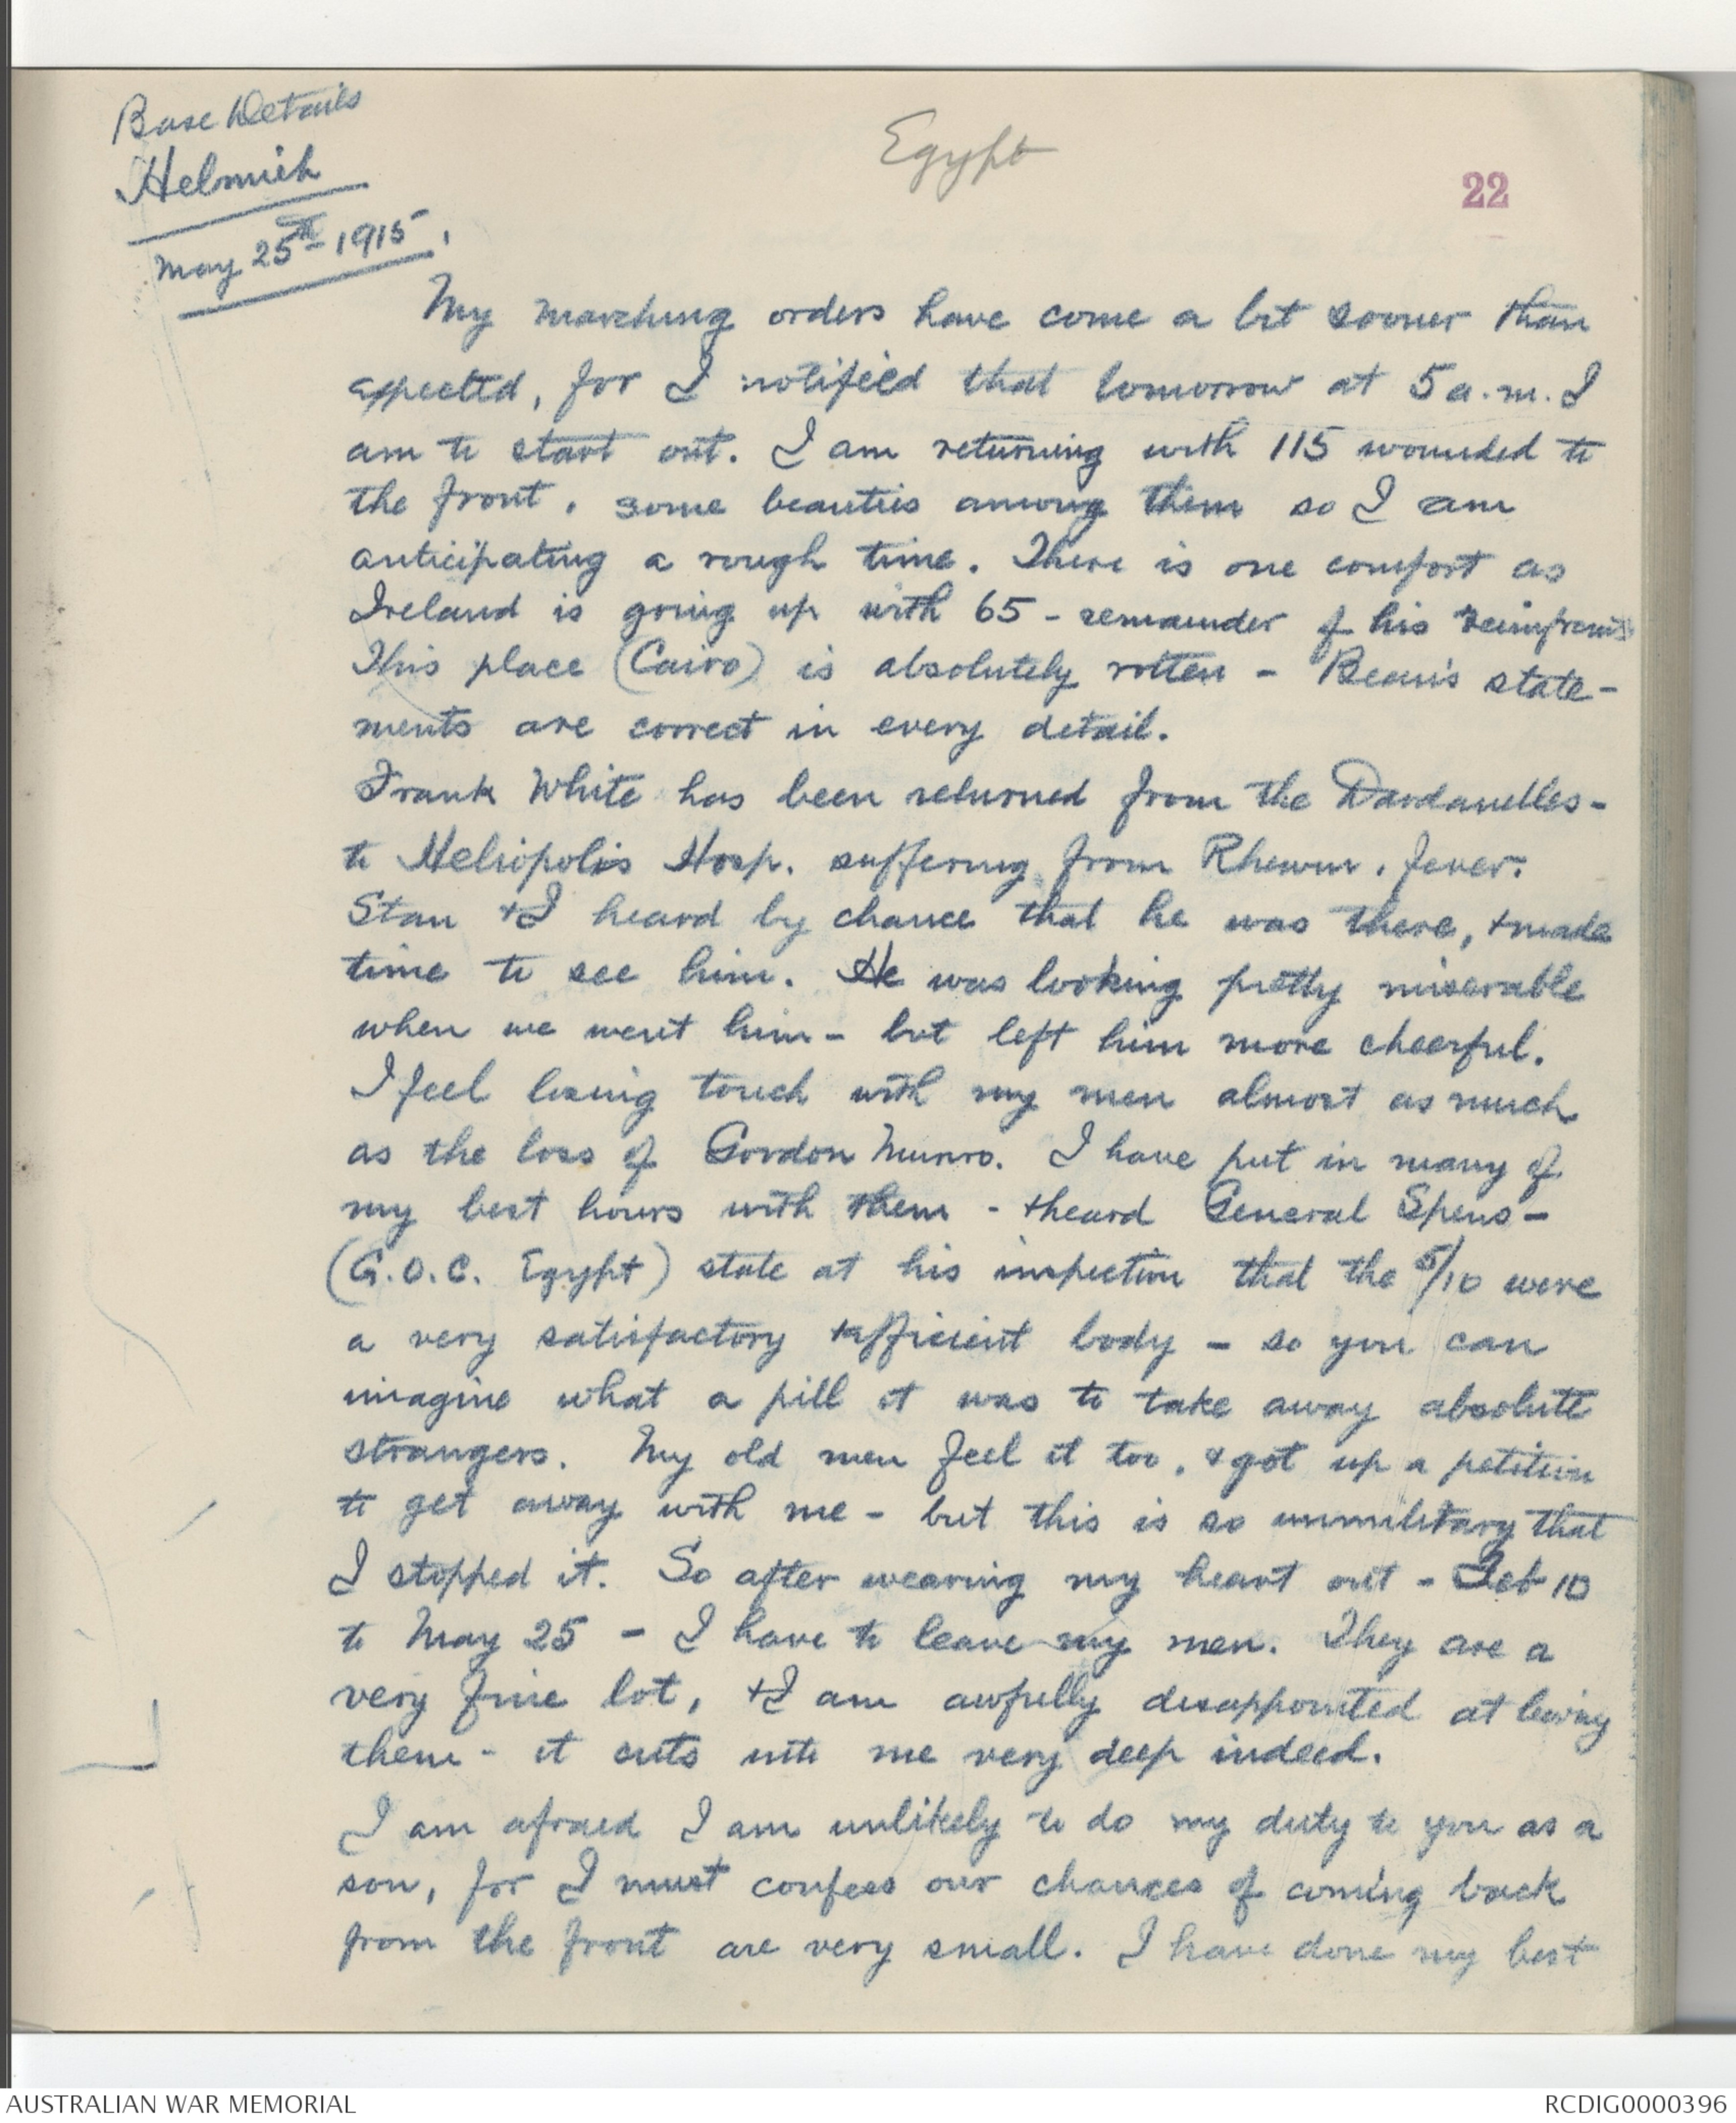 Base Details
Helmich
May 25th - 1915.
Egypt
22
My marching orders have come a bit sooner than
expected, for I notified that tomorrow at 5 a.m. I
am to start out. I am returning with 115 wounded to
the front. some beauties among them so I am
anticipating a rough time. There is one comfort as
Ireland is going up with 65 - remainder of his
This place (Cairo) is absolutely rotten - Bean's state-
ments are correct in every detail.
Frank White has been returned from the Dardanelles -
to Heliopolis Hosp. suffering from Rheum. fever.
Stan & I heard by chance that he was there, & made
time to see him. He was looking pretty miserable
when we went him - but left him more cheerful.
I feel losing touch with my men almost as much
as the loss of Gordon Munro. I have put in many of
my best hours with them - & heard General Spens -
(G.O.C. Egypt) state at his inspection that the 5/10 were
a very satisfactory & efficient body - so you can
imagine what a pill it was to take away absolute
strangers. My old men feel it too, & got up a petition
to get away with me - but this is so unmilitary that
I stopped it. So after wearing my heart out - Feb 10
to May 25 - I have to leave my men. They are a
very fine lot, & I am awfully disappointed at leaving
them - it cuts into me very deep indeed.
I am afraid I am unlikely to do my duty to you as a
son, for I must confess our chances of coming back
from the front are very small. I have done my best
AUSTRALIAN WAR MEMORIAL
RCDIG0000396